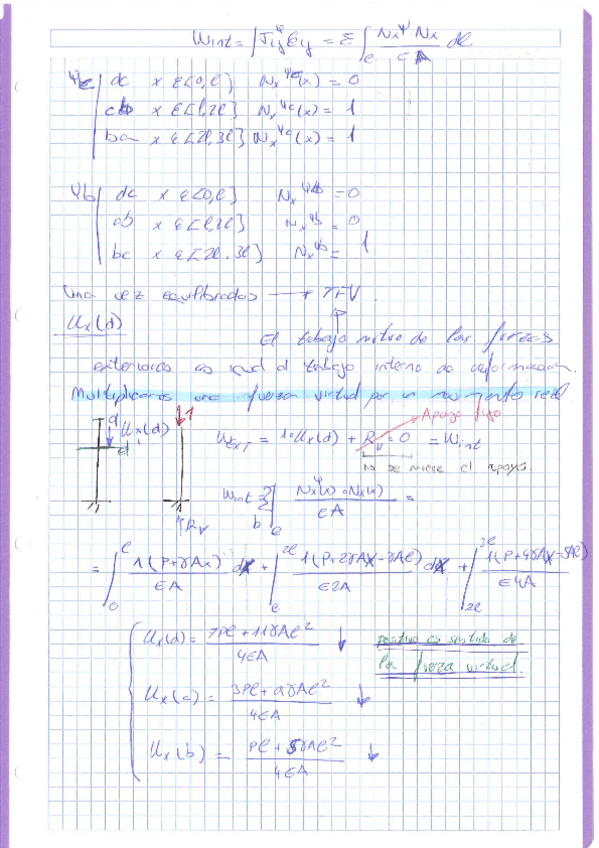 Wint = ∫ Tij^Ψ Eij = Σ ∫e Nx^Ψ · Nx / EA dl
Ψc | dc x ε [0,l] Nx^Ψc(x) = 0
cb x ε [l,2l] Nx^Ψc(x) = 1
ba x ε [2l,3l] Nx^Ψc(x) = 1
Ψb | dc x ε [0,l] Nx^Ψb = 0
cb x ε [l,2l] Nx^Ψb = 0
ba x ε [2l,3l] Nx^Ψb = 1
Una vez equilibrados → TFV.
Ux(d)
El trabajo mutuo de las fuerzas
exteriores es igual al trabajo interno de deformación.
Multiplicamos una fuerza virtual por un movimiento real
d Ux(d) d' 1 ↑Rv
Apoyo fijo
Wext = 1·Ux(d) + Rv·0 = Wint
no se mueve el apoyo
Wint = Σ ∫e Nx^Ψ(x) · Nx(x) / EA =
= ∫0^l 1(P+γAx) / EA dx + ∫l^2l 1(P+2γAx-γAl) / E2A dx + ∫2l^3l 1(P+4γAx-5Al) / E4A
Ux(d) = 7Pl+11γAl² / 4EA ↓
positivo es sentido de
la fuerza virtual.
Ux(c) = 3Pl+9γAl² / 4EA ↓
Ux(b) = Pl+5γAl² / 4EA ↓